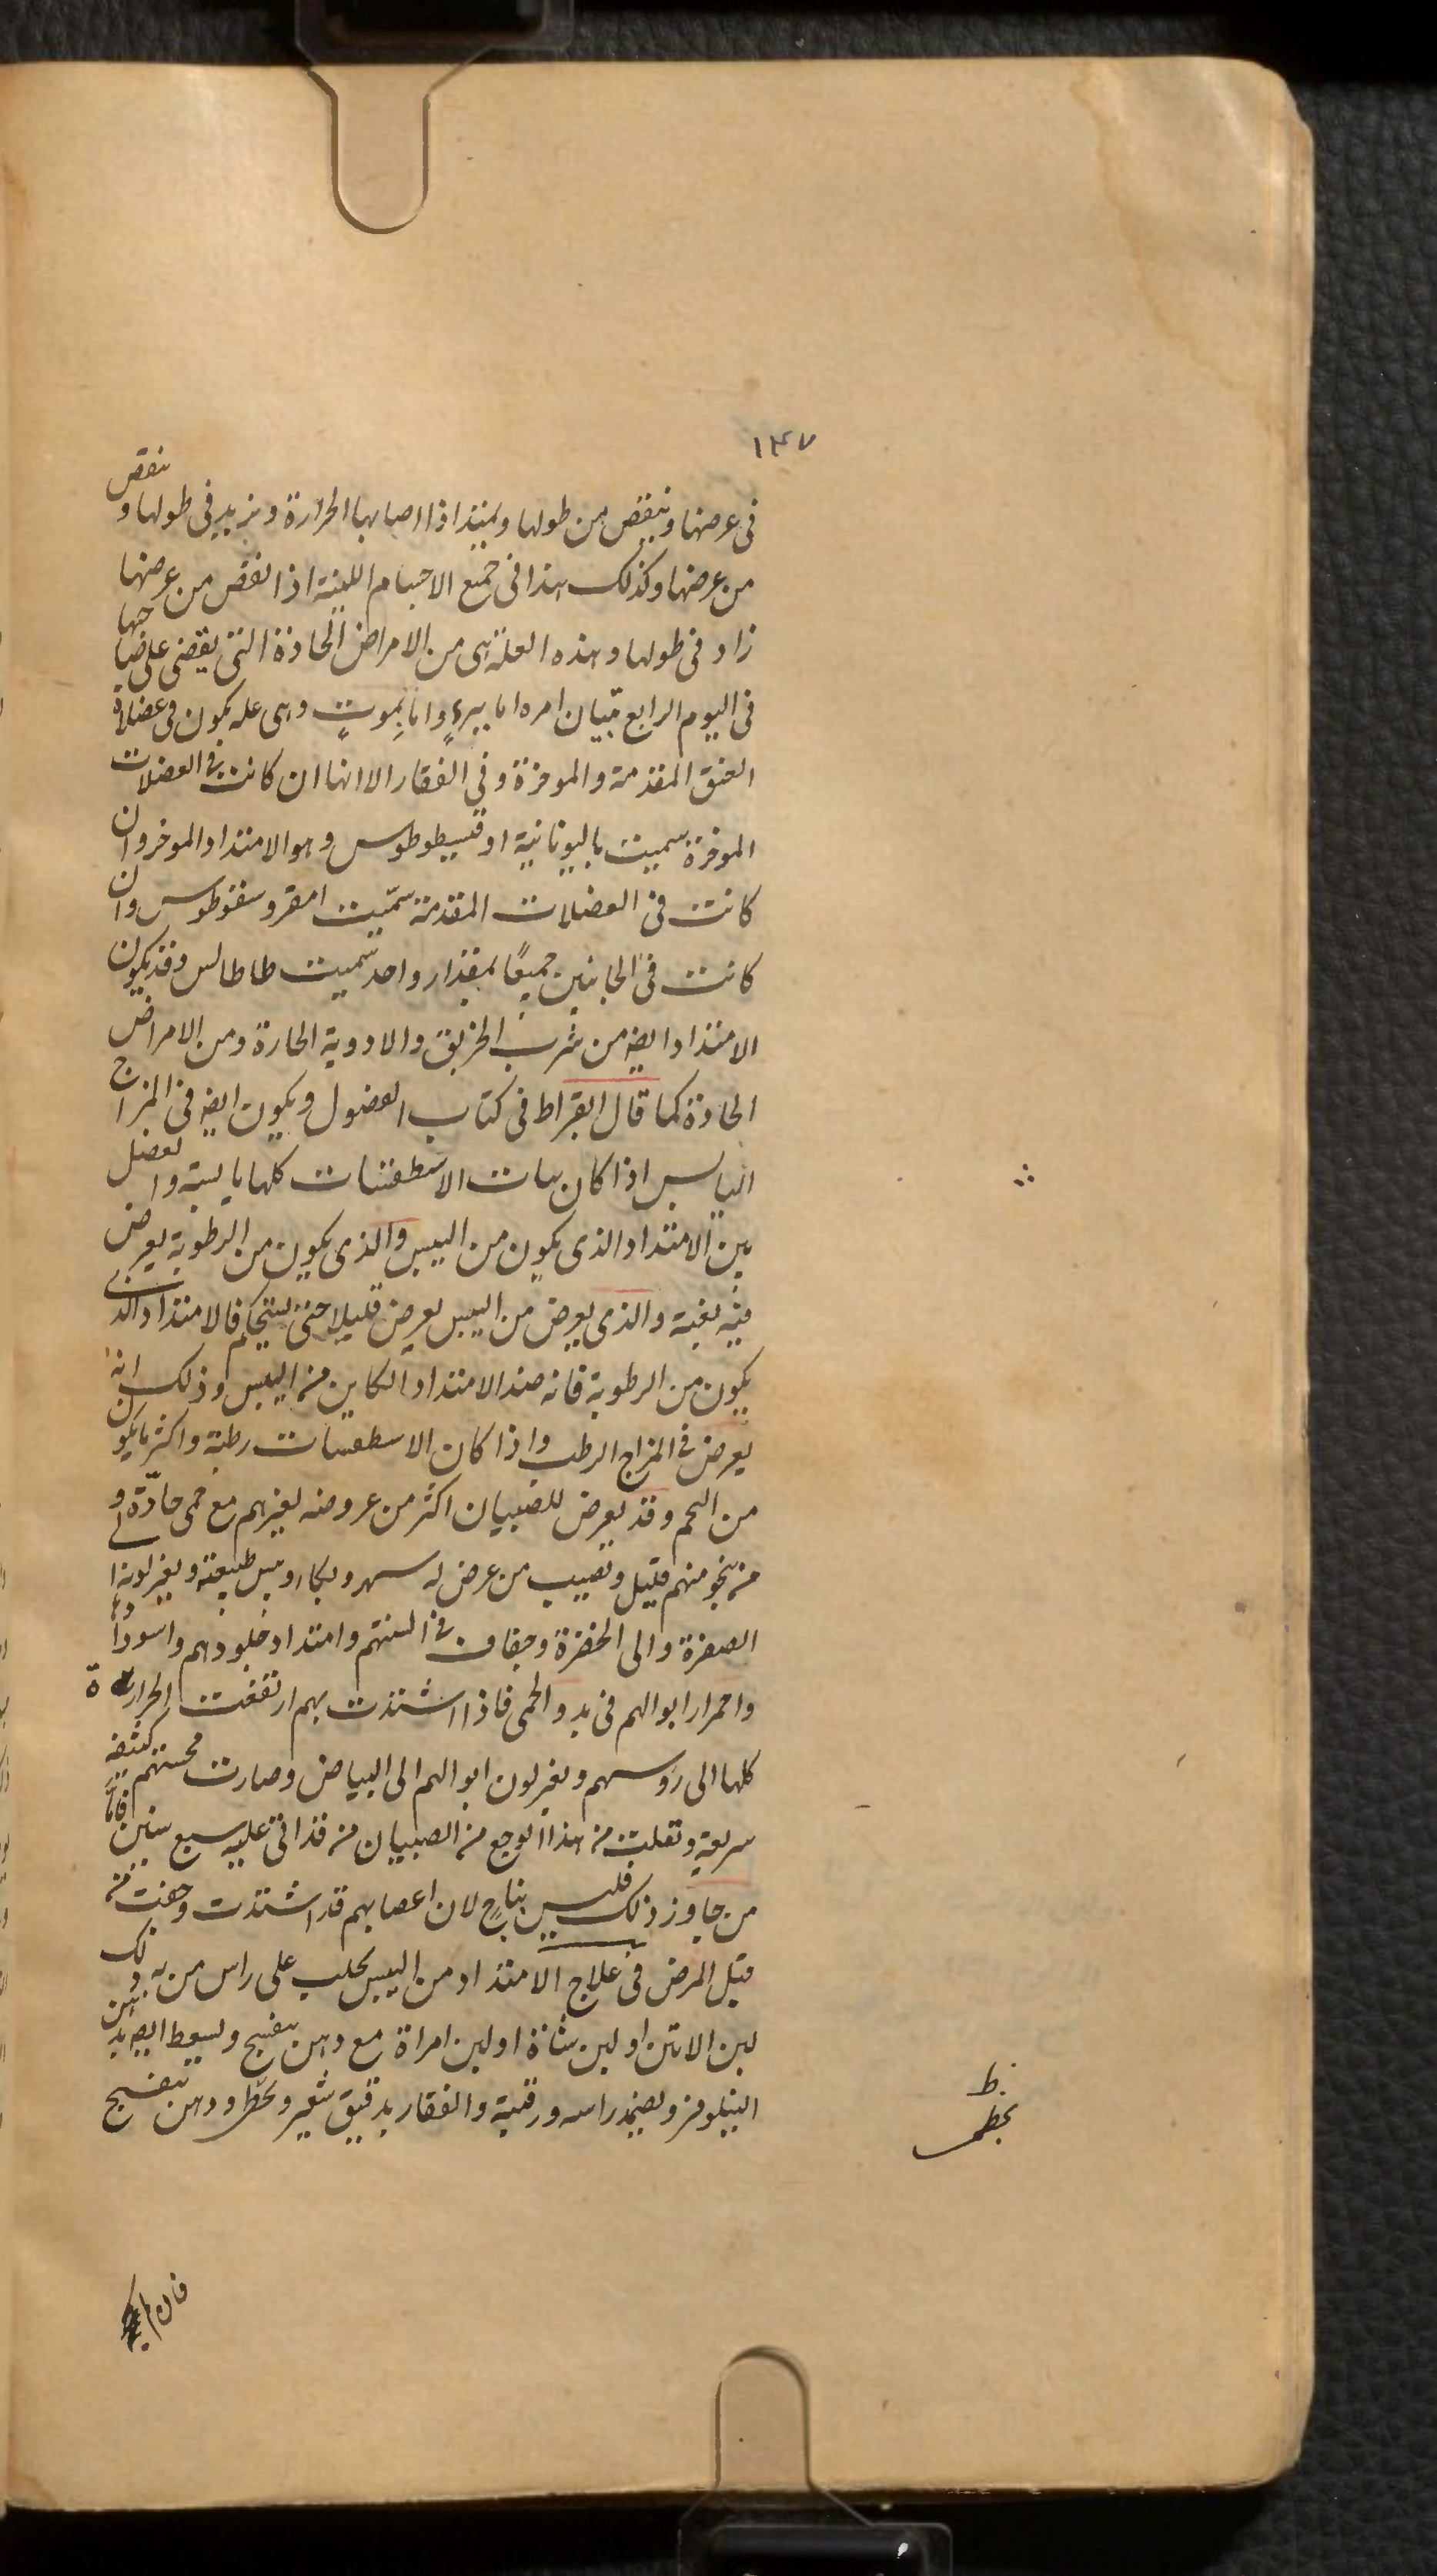 ١٤٧
فى عرضها وينقص من طولها ويمتد اذا اصابها الحرارة ويزيد فى طولها و ينقص
من عرضها وكذلك هذا فى جميع الاجسام اللينة اذا نقص من عرضها
زاد فى طولها وهذه العلة هى من الامراض الحادة التى يقضى على صاحبها
فى اليوم الرابع تبيان امره اما ببرء واما بموت وهى عله يكون فى عضلاة
العنق المقدمة والموخرة وفى الفقار الا انها ان كانت فى العضلات
الموخرة سميت باليونانية اوقسيطوطوس وهو الامتداد الموخر وان
كانت فى العضلات المقدمة سمّيت امقروسقوطوس وان
كانت فى الجانبين جميعًا بمقدار واحد سميت طاطالس وقد يكون
الامتداد ايضه من شرب الخربق والادوية الحارة ومن الامراض
الحادة كما قال ابقراط فى كتاب الفصول ويكون ايضه فى المزاج
اليابس اذا كان بيات الاسطقسات كلها يابسة والفصل
بين الامتداد الذى يكون من اليبس والذى يكون من الرطوبة يعرض
فيه بغتة والذى يعرض من اليبس يعرض قليلا حتى يستحكم فالامتداد الذى
يكون من الرطوبة فانه ضد الامتداد الكاين من اليبس وذلك انه
يعرض فى المزاج الرطب واذا كان الاسطقسات رطبة واكثر ما يكون
من التخم وقد يعرض للصبيان اكثر من عروضه لغيرهم مع حمى حادّة و
من ينجو منهم قليل ونصيب من عرض له سهر وبكاء ويبس طبيعته ويغير لونه الى
الصفرة والى الخضرة وجفاف فى السنتهم وامتداد جلودهم واسودادها
واحمرار ابوالهم فى بدو الحمى فاذا اشتدت بهم ارتفعت الحرارة
كلها الى رؤسهم ويغير لون ابوالهم الى البياض وصارت مجستهم كثيفه
سريعة وتفلت من هذا الوجع من الصبيان من قد اتى عليه سبع سنين فاما
من جاوز ذلك فليس بناج لان اعصابهم قد اشتدت وجفت من
قبل المرض فى علاج الامتداد من اليبس يحلب على راس من به ذلك
لبن الاتن او لبن شاة او لبن امراة مع دهن بنفسج ويسعط ايضه بدهن
النيلوفر ويضمد راسه ورقبته والفقار بدقيق شعير وخطر ودهن بنفسج
ظ
بخطمى
فان